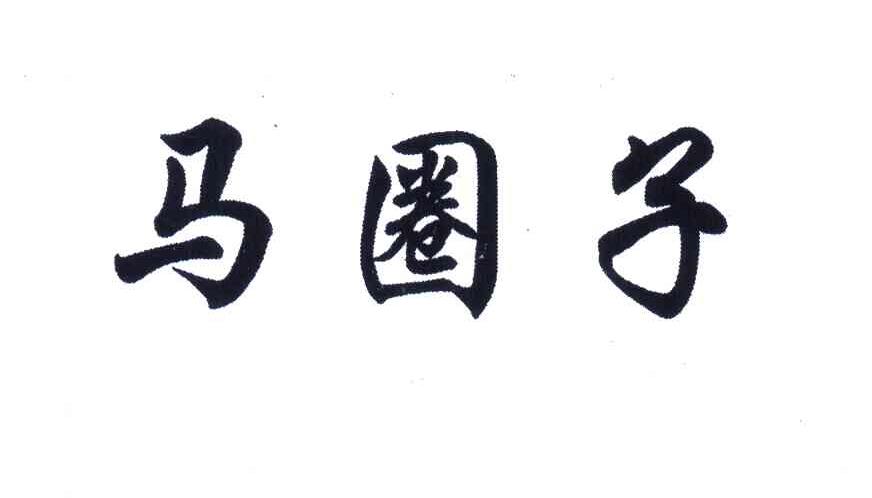 马圈子